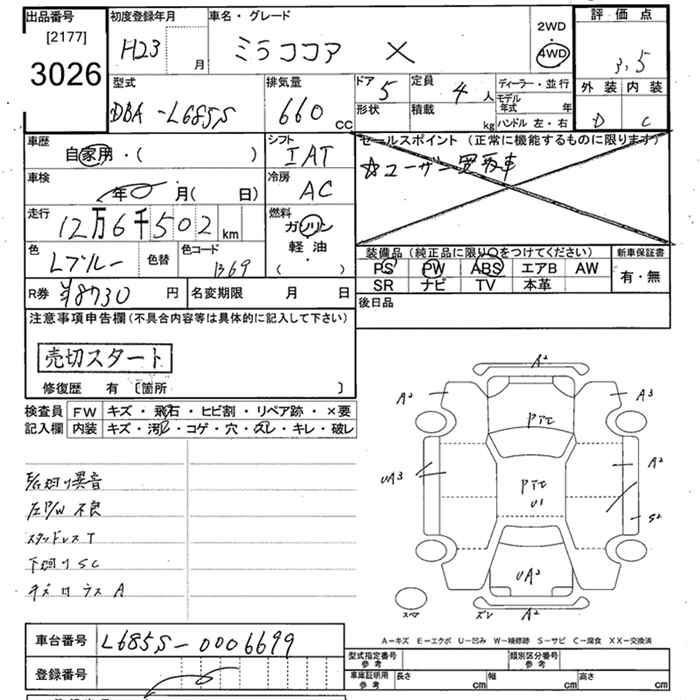 出品番号 初度登録年月 車名・グレード 2WD 評価点
[2177] H23 月 ミラココア X 4WD 3.5
3026
型式 排気量 ドア 5 定員 4人 ディーラー・並行 外装 内装
DBA-L685S 660 cc 形状 積載 kg モデル年式 年 D C
ハンドル 左・右
車歴 シフト セールスポイント (正常に機能するものに限ります)
自家用・( ) IAT ☆ユーザー買取車
車検 冷房
年 月( 日) AC
走行 燃料
12万6千502km ガソリン
色 色替 色コード 軽油
Lブルー B69 ( ・ )
装備品 (純正品に限り○をつけてください) 新車保証書
PS PW ABS エアB AW 有・無
SR ナビ TV 本革
R券 ¥8730 円 名変期限 月 日 後日品
注意事項申告欄 (不具合内容等は具体的に記入して下さい)
売切スタート
修復歴 有 〔箇所 〕
検査員 FW キズ・飛石・ヒビ割・リペア跡・×要
記入欄 内装 キズ・汚レ・コゲ・穴・スレ・キレ・破レ
異音
左P/W 不良
スタッドレスT
下回りSC
A²
A² A³
PTC
UA3 A²
PTC
U1 S²
UA³
スペア ズレ A²
A-キズ E-エクボ U-凹み W-補修跡 S-サビ C-腐食 XX-交換済
車台番号 L685S-0006699
登録番号
型式指定番号 参考 類別区分番号 参考
車庫証明用 参考 長さ cm 幅 cm 高さ cm